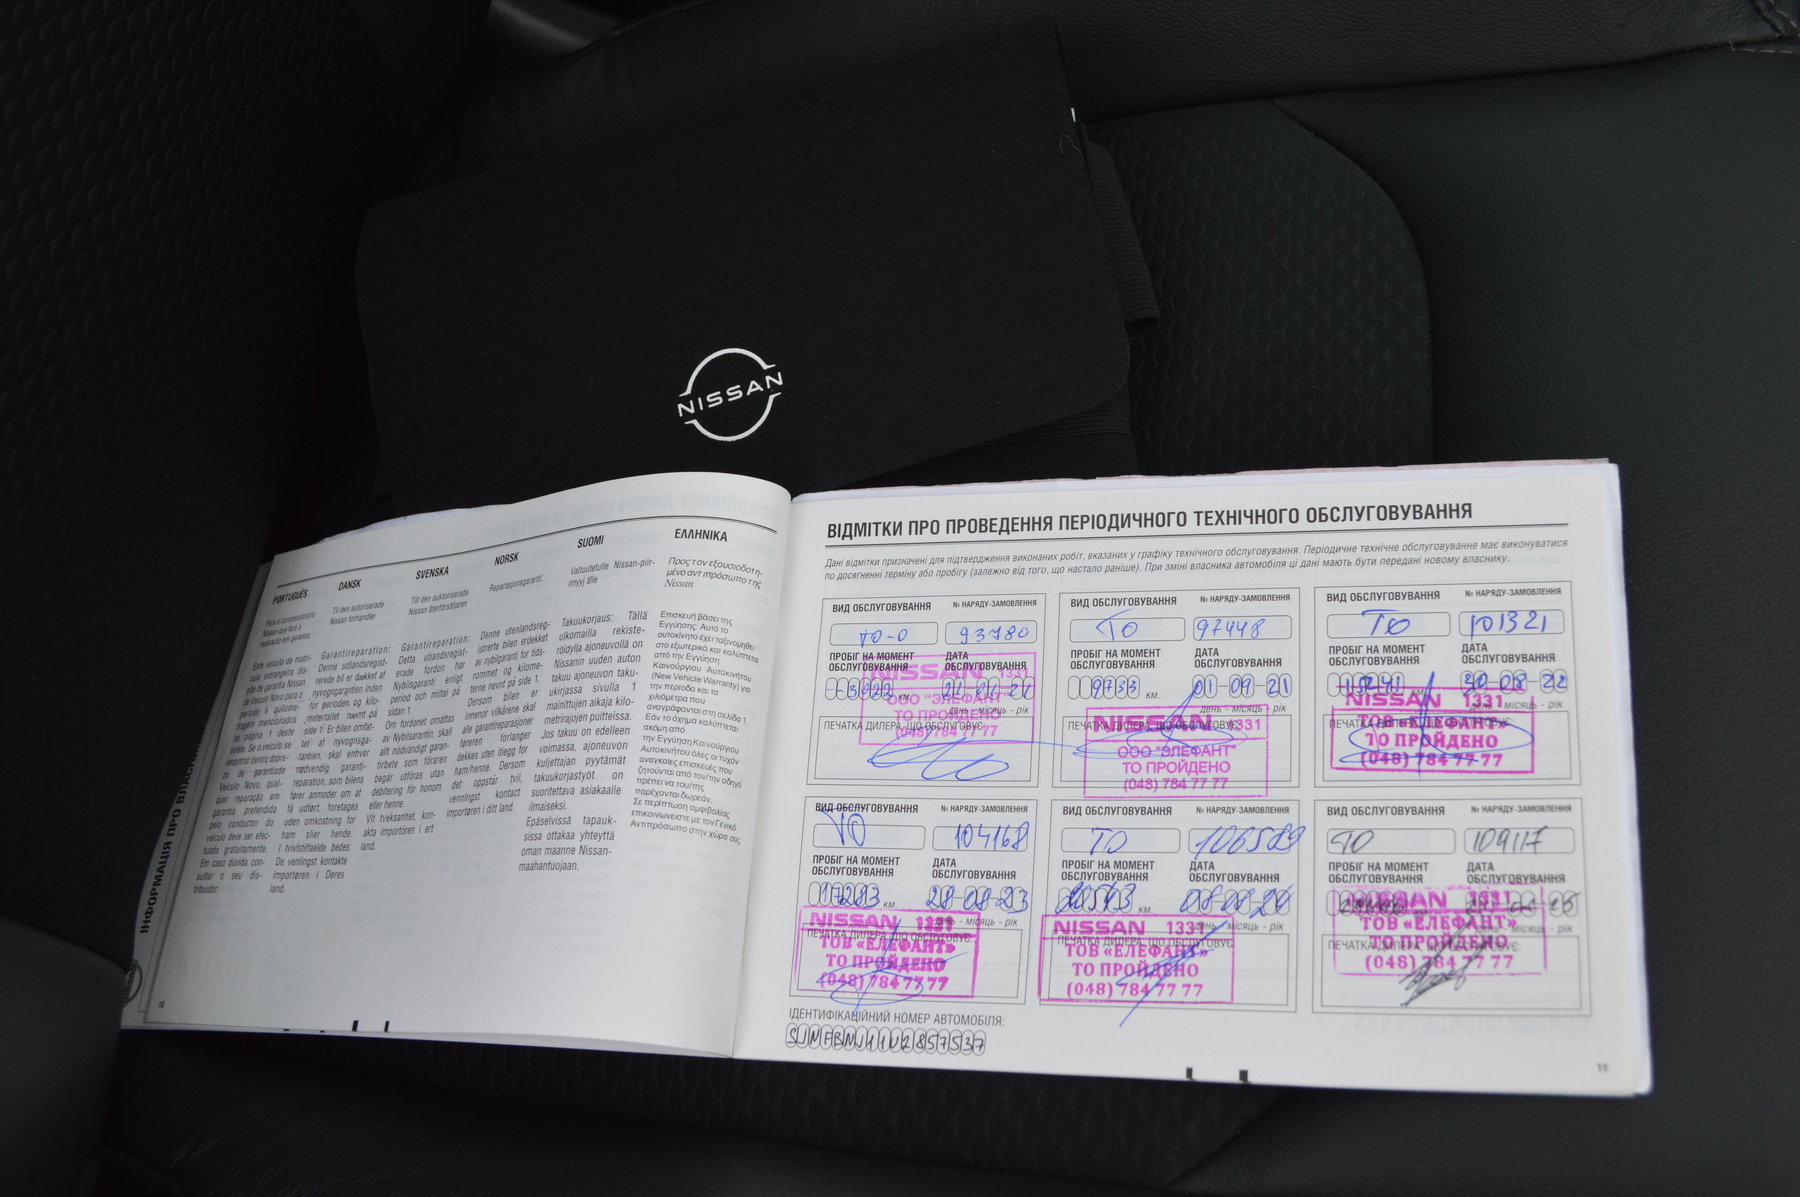 NISSAN
ІНФОРМАЦІЯ ПРО
PORTUGUÊS
Para o concessionário
Nissan que fará a
reparação em garantia:
Este veículo de matrí-
cula estrangeira dis-
põe de garantia Nissan
de Veículo Novo para o
período e quilome-
tragem mencionados
na página 1 deste
livrete. Se o veículo se
encontrar dentro do pra-
zo de garantia de
Veículo Novo, qual-
quer reparação em
garantia pretendida
pelo condutor do
veículo deve ser efec-
tuada gratuitamente.
Em caso dúvida con-
sultar o seu dis-
tribuidor.
DANSK
Til den autoriserede
Nissan forhandler
Garantireparation:
Denne udlandsregist-
rerede bil er dækket af
nyvognsgarantien inden
for perioden, og kilo-
metertallet nævnt på
side 1. Er bilen omfat-
tet af nyvognsga-
rantien, skal enhver
nødvendig garanti-
reparation, som bilens
fører anmoder om at
få udført, foretages
uden omkostning for
ham eller hende.
I tvivlstilfælde bedes
De venligst kontakte
importøren i Deres
land.
SVENSKA
Till den auktoriserade
Nissan återförsäljaren
Garantireparation:
Detta utlandsregist-
rerade fordon har
Nybilsgaranti enligt
period och mital på
sidan 1.
Om fordonet omfattas
av Nybilsgarantin, skall
allt nödvändigt garan-
tirbete som föraren
begär utföras utan
debitering för honom
eller henne.
Vit tveksanhet, kon-
akta importören i ert
land.
NORSK
Reparasjonsgaranti:
Denne utenlandsreg-
istrerte bilen erdekket
av nybilgaranti for tids-
rommet og kilome-
terne nevnt på side 1.
Dersom bilen er
innenor vilkårene skal
alle garantireparasjoner
føreren forlanger
dekkes uten tillegg for
ham/henne. Dersom
det oppstår tvil,
venningst kontact
importøren i ditt land.
SUOMI
Valtuutetulle Nissan-piir-
imyyj älle
Takuukorjaus: Tällä
ulkomailla rekiste-
röidyllä ajoneuvollä on
Nissanin uuden auton
takuu ajoneuvon taku-
ukirjassa sivulla 1
mainittujen aikaja kilo-
metrirajojen puitteissa.
Jos takuu on edelleen
voimassa, ajoneuvon
kuljettajan pyytämät
takuukorjastyöt on
suoritettava asiakaalle
ilmaiseksi.
Epäselvissä tapauk-
sissa ottakaa yhteyttä
oman maanne Nissan-
maahantuojaan.
ΕΛΛΗΝΙΚΑ
Προς τον εξουσιοδοτη-
μένο αντιπρόσωπο της
Nissan
Επισκευή βάσει της
Εγγύησης: Αυτό το
αυτοκίνητο έχει ταξινομηθεί
στο εξωτερικό και καλύπτεται
από την Εγγύηση
Καινούργιου Αυτοκινήτου
(New Vehicle Warranty) για
την περίοδο και τα
χιλιόμετρα που
αναγράφονται στη σελίδα 1.
Εάν το όχημα καλύπτεται
ακόμη από
την Εγγύηση Καινούργιου
Αυτοκινήτου όλες οι τυχόν
αναγκαίες επισκευές που
ζητούνται από τον/την οδηγό
πρέπει να του/της
παρέχονται δωρεάν.
Σε περίπτωση αμφιβολίας
επικοινωνείστε με τον Γενικό
Αντιπρόσωπο στην χώρα σας
10
ВІДМІТКИ ПРО ПРОВЕДЕННЯ ПЕРІОДИЧНОГО ТЕХНІЧНОГО ОБСЛУГОВУВАННЯ
Дані відмітки призначені для підтвердження виконаних робіт, вказаних у графіку технічного обслуговування. Періодичне технічне обслуговуванне має виконуватися
по досягненні терміну або пробігу (залежно від того, що настало раніше). При зміні власника автомобіля ці дані мають бути передані новому власнику.
ВИД ОБСЛУГОВУВАННЯ № НАРЯДУ-ЗАМОВЛЕННЯ
ТО-0 93780
ПРОБІГ НА МОМЕНТ ОБСЛУГОВУВАННЯ ДАТА ОБСЛУГОВУВАННЯ
км.
день - місяць - рік
ПЕЧАТКА ДИЛЕРА, ЩО ОБСЛУГОВУЄ:
NISSAN 1331
ООО "ЭЛЕФАНТ"
ТО ПРОЙДЕНО
(048) 784 77 77
ВИД ОБСЛУГОВУВАННЯ № НАРЯДУ-ЗАМОВЛЕННЯ
ТО 97448
ПРОБІГ НА МОМЕНТ ОБСЛУГОВУВАННЯ ДАТА ОБСЛУГОВУВАННЯ
9733 км. 01-09-21
день - місяць - рік
ПЕЧАТКА ДИЛЕРА, ЩО ОБСЛУГОВУЄ:
NISSAN 1331
ООО "ЭЛЕФАНТ"
ТО ПРОЙДЕНО
(048) 784 77 77
ВИД ОБСЛУГОВУВАННЯ № НАРЯДУ-ЗАМОВЛЕННЯ
ТО 101321
ПРОБІГ НА МОМЕНТ ОБСЛУГОВУВАННЯ ДАТА ОБСЛУГОВУВАННЯ
30-08-22
день - місяць - рік
ПЕЧАТКА ДИЛЕРА, ЩО ОБСЛУГОВУЄ:
NISSAN 1331
ТОВ «ЕЛЕФАНТ»
ТО ПРОЙДЕНО
(048) 784 77 77
ВИД ОБСЛУГОВУВАННЯ № НАРЯДУ-ЗАМОВЛЕННЯ
ТО 104168
ПРОБІГ НА МОМЕНТ ОБСЛУГОВУВАННЯ ДАТА ОБСЛУГОВУВАННЯ
17283 км. 28-08-23
день - місяць - рік
ПЕЧАТКА ДИЛЕРА, ЩО ОБСЛУГОВУЄ:
NISSAN 1331
ТОВ «ЕЛЕФАНТ»
ТО ПРОЙДЕНО
(048) 784 77 77
ВИД ОБСЛУГОВУВАННЯ № НАРЯДУ-ЗАМОВЛЕННЯ
ТО 106589
ПРОБІГ НА МОМЕНТ ОБСЛУГОВУВАННЯ ДАТА ОБСЛУГОВУВАННЯ
20543 км. 08-08-24
день - місяць - рік
ПЕЧАТКА ДИЛЕРА, ЩО ОБСЛУГОВУЄ:
NISSAN 1331
ТОВ «ЕЛЕФАНТ»
ТО ПРОЙДЕНО
(048) 784 77 77
ВИД ОБСЛУГОВУВАННЯ № НАРЯДУ-ЗАМОВЛЕННЯ
ТО 109117
ПРОБІГ НА МОМЕНТ ОБСЛУГОВУВАННЯ ДАТА ОБСЛУГОВУВАННЯ
день - місяць - рік
ПЕЧАТКА ДИЛЕРА, ЩО ОБСЛУГОВУЄ:
NISSAN 1331
ТОВ «ЕЛЕФАНТ»
ТО ПРОЙДЕНО
(048) 784 77 77
ІДЕНТИФІКАЦІЙНИЙ НОМЕР АВТОМОБІЛЯ:
SJNFBNJ11U2857537
11